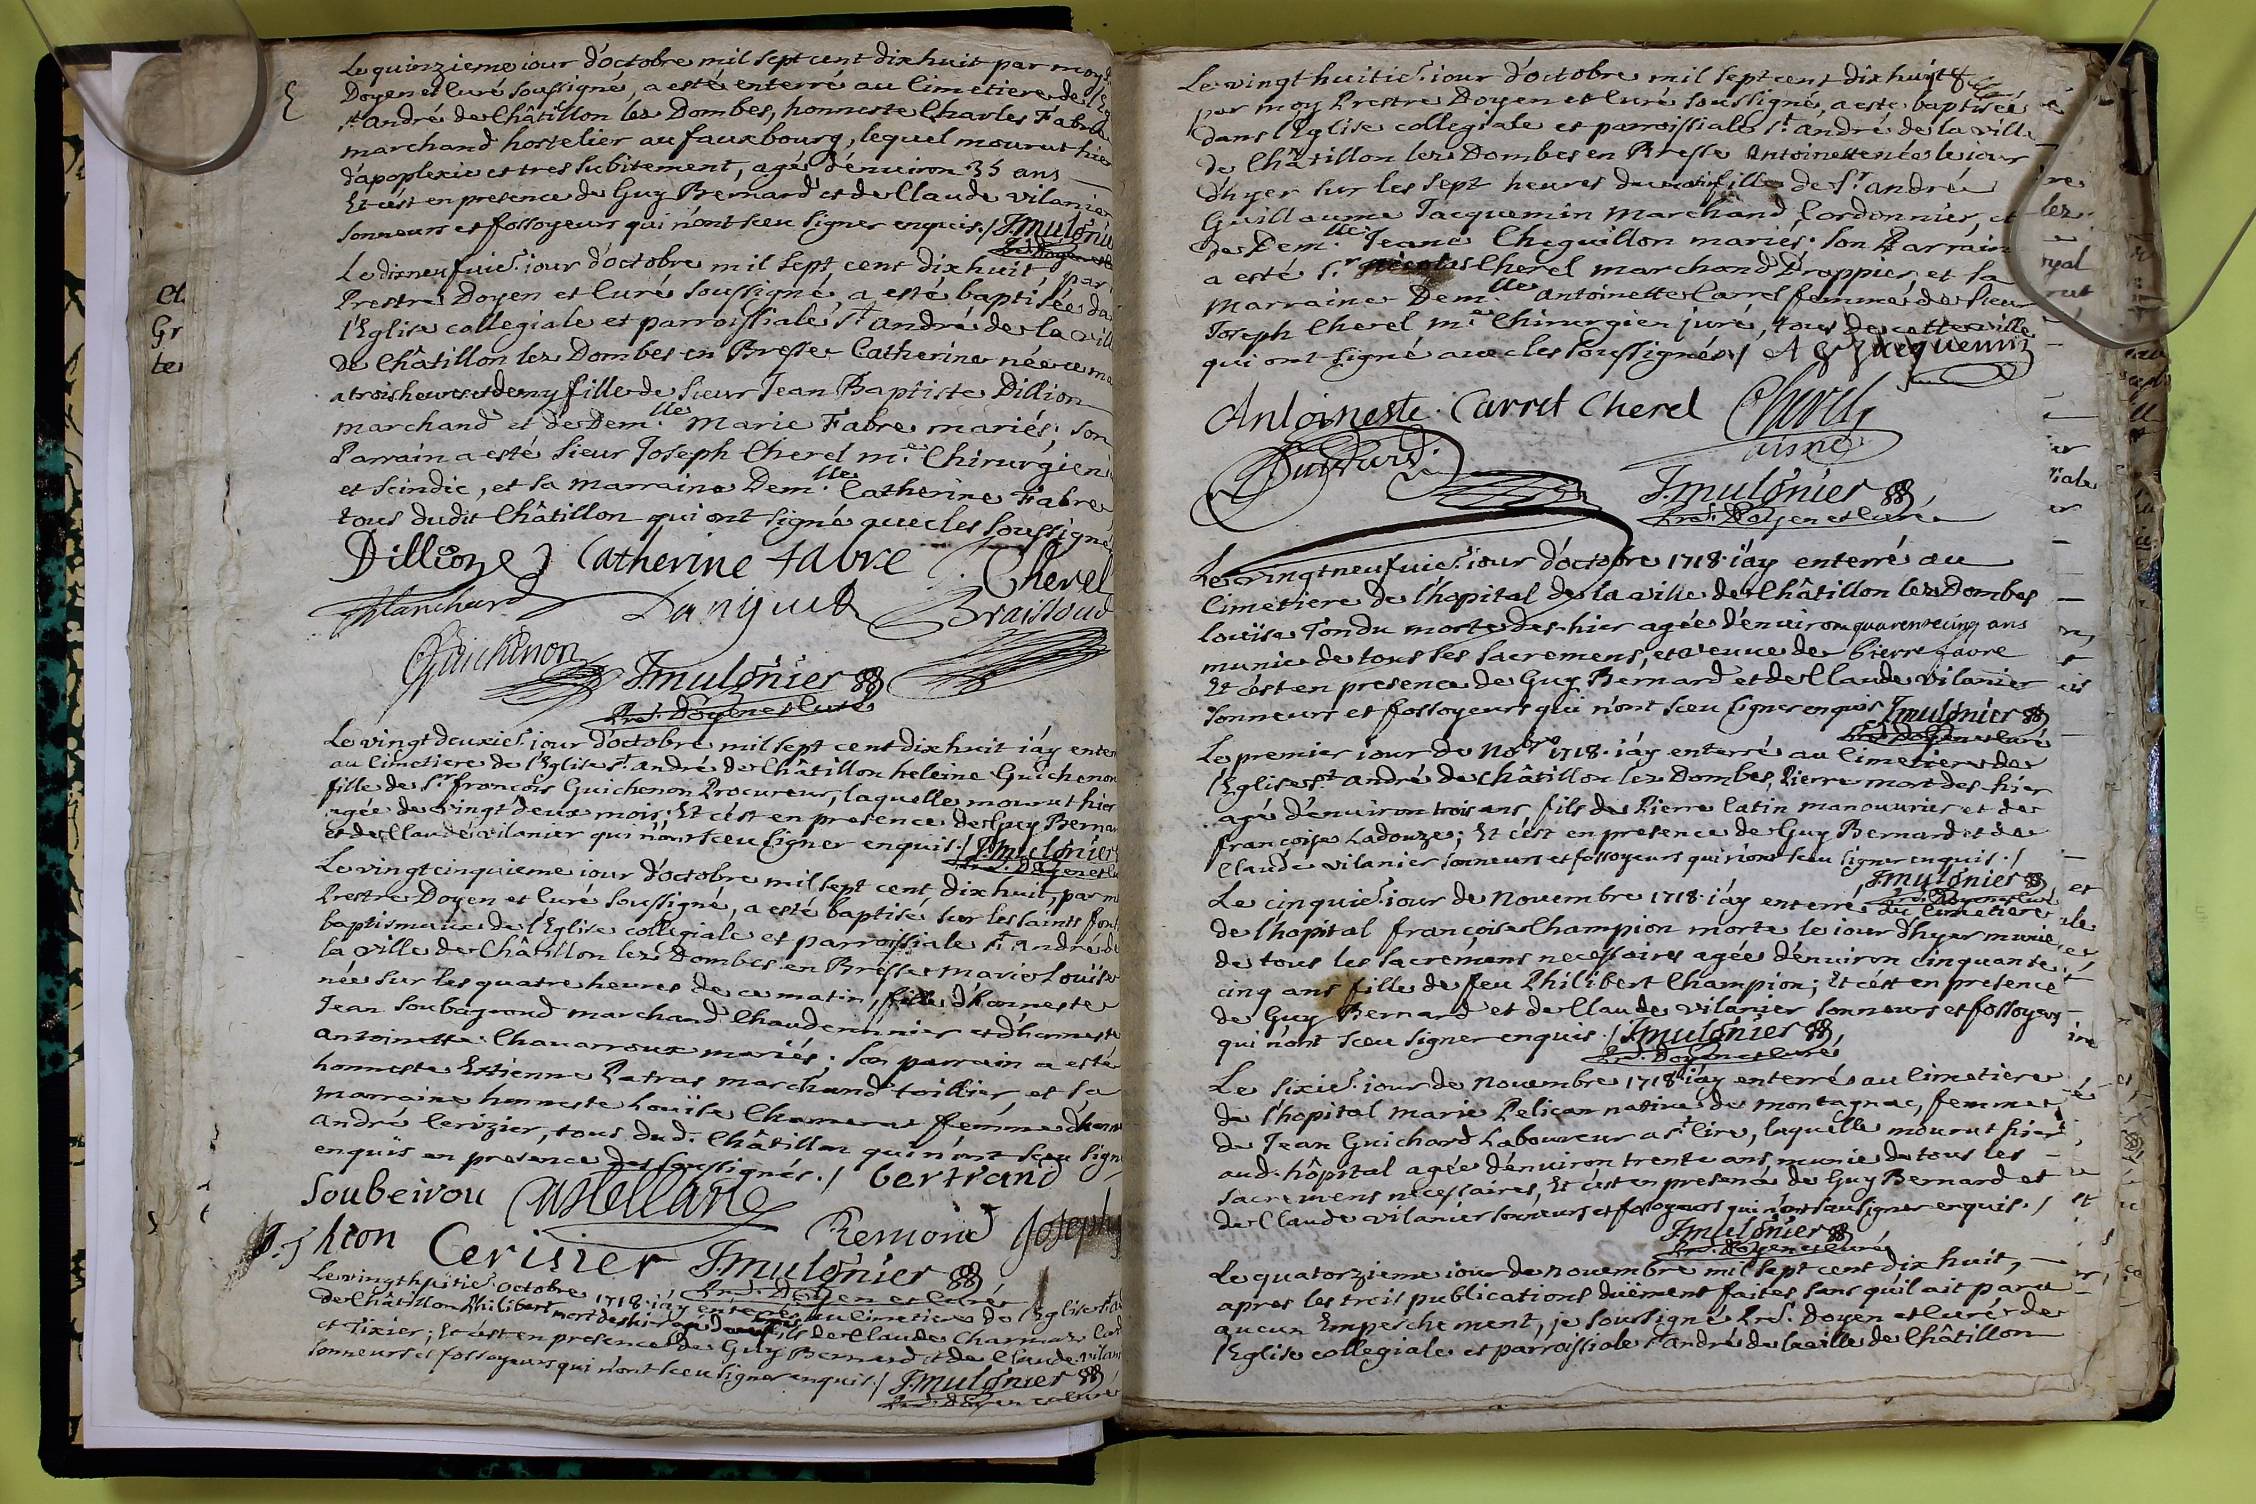 Le quinzieme iour d'octobre mil sept cent dix huit par moy
Doyen et Curé soussigné, a esté enterré au Cimetiere de
st André de Châtillon lez Dombes, honneste Charles Fabre
marchand hostelier au fauxbourg, lequel mourut hier
d'apoplexie et tres subitement, agé d'enuiron 35 ans
Et c'est en presence de Guy Bernard et de Claude Vilanier
sonneurs et fossoyeurs qui n'ont sceu signer enquis./ J. mulonier
Pre. Doyen et
Le dixneufuie. iour d'octobre mil sept cent dix huit par
Prestre Doyen et Curé soussigné, a esté baptisée da
l'Eglise collegiale et parroissiale st André de la vill
de Châtillon lez Dombes en Bresse Catherine née ce ma
a trois heures et demy fille de sieur Jean Baptiste Dillion
marchand et de Dem.lle Marie Fabre mariés; son
Parrain a esté sieur Joseph Cherel me. Chirurgien
et scindic, et sa marraine Dem.lle Catherine Fabre
tous dudit Châtillon qui ont signé auec les soussigné
Dillione Catherine fabre J. Cherel
Blanchard Languet Braissoud
Guichenon J. mulonier
Pre. Doyen et Curé
Le vingt deuxie. iour d'octobre mil sept cent dix huit i'ay enter
au Cimetiere de l'Eglise st André de Châtillon heleine Guichenon
fille de sr françois Guichenon Procureur, laquelle mourut hier
agée de vingt deux mois; Et c'est en presence de Guy Bernar
et de Claude Vilanier qui n'ont sceu signer enquis./ J. mulonier
Pre. Doyen et Cu
Le vingt cinquieme iour d'octobre mil sept cent dix huit, par m
Prestre Doyen et Curé soussigné, a esté baptisé sur les saints font
baptismaux de l'Eglise collegiale et parroissiale st André de
la ville de Châtillon lez Dombes en Bresse Marie Louïse
née sur les quatre heures de ce matin, fille d'honneste
Jean Soubayroud marchand Chauderonnier et d'honneste
Antoinette Chauarroux mariés; son parrain a esté
honneste Estienne Patras marchand toillier, et sa
marraine honneste Louïse Chamerat femme d'honn
André Cerizier, tous dud. Châtillon qui n'ont sceu sign
enquis en presence des soussignés./ bertrand
Soubeirou Castellane
hion Cerisier Remond Joseph
J. mulonier
Pre. Doyen et Curé
Le vingthuitie. octobre 1718. i'ay enterré au Cimetiere de l'Eglise st A
de Châtillon Philibert mort des hier fils de Claude Charmaz Card
et Tixier; Et c'est en presence de Guy Bernard et de Claude Vilan
sonneurs et fossoyeurs qui n'ont sceu signer enquis./ J. mulonier
Pre. Doyen et Curé
et
Gr
te
Le vingt huitie. iour d'octobre mil sept cent dix huit
par moy Prestre Doyen et Curé soussigné, a esté baptisée
dans l'Eglise collegiale et parroissiale st André de la ville
de Châtillon lez Dombes en Bresse Antoinette née le iour
d'hyer sur les sept heures du matin fille de sr. André
Guillaume Jacquemin marchand Cordonnier, et
de Dem.lle Jeane Cheguillon mariés; son Parrain
a esté sr. Nicolas Cherel marchand Drappier et sa
marraine Dem.lle Antoinette Carrel femme de sieur
Joseph Cherel me. Chirurgien juré, tous de cette ville
qui ont signé auec les soussignés./ A G Jacquemin
Antoineste Carret Cherel Cherel
aisné
J. mulonier
Pre. Doyen et Curé
Le vingtneufuie. iour d'octobre 1718. i'ay enterré au
Cimetiere de l'hopital de la ville de Châtillon lez Dombes
Louïse Tondu morte des-hier agée d'enuiron quarentecinq ans
munie de tous ses sacremens, et veuue de Pierre favre
Et c'est en presence de Guy Bernard et de Claude Vilanier
sonneurs et fossoyeurs qui n'ont sceu signer enquis J. mulonier
Pre. Doyen et Curé
Le premier iour de Nobre 1718. i'ay enterré au Cimetiere de
l'Eglise st André de Châtillon lez Dombes, Pierre mort des-hier
agé d'enuiron trois ans, fils de Pierre Catin manouurier et de
françoise Ladouze; Et c'est en presence de Guy Bernard et de
Claude Vilanier sonneurs et fossoyeurs qui n'ont sceu signer enquis./
J. mulonier
Pre. Doyen et Curé
Le cinquie. iour de Novembre 1718. i'ay enterré au Cimetiere
de l'hopital françoise Champion morte le iour d'hyer munie
de tous les sacremens necessaires agée d'enuiron cinquante
cinq ans fille de feu Philibert Champion; Et c'est en presence
de Guy Bernard et de Claude Vilanier sonneurs et fossoyeurs
qui n'ont sceu signer enquis./ J. mulonier
Pre. Doyen et Curé
Le sixie. iour de Novembre 1718 i'ay enterré au Cimetiere
de l'hopital marie Pelican native de montagnac, femme
de Jean Guichard Laboureur a st Cire, laquelle mourut hier
aud. hôpital agée d'enuiron trente ans, munie de tous les
sacremens necessaires, Et c'est en presence de Guy Bernard et
de Claude Vilanier sonneurs et fossoyeurs qui n'ont sceu signer enquis./
J. mulonier
Pre. Doyen et Curé
Le quatorzieme iour de novembre mil sept cent dix huit,
apres les trois publications duëment faites sans qu'il ait paru
aucun Empeschement, je soussigné Pre. Doyen et Curé de
l'Eglise collegiale et parroissiale st André de la ville de Châtillon